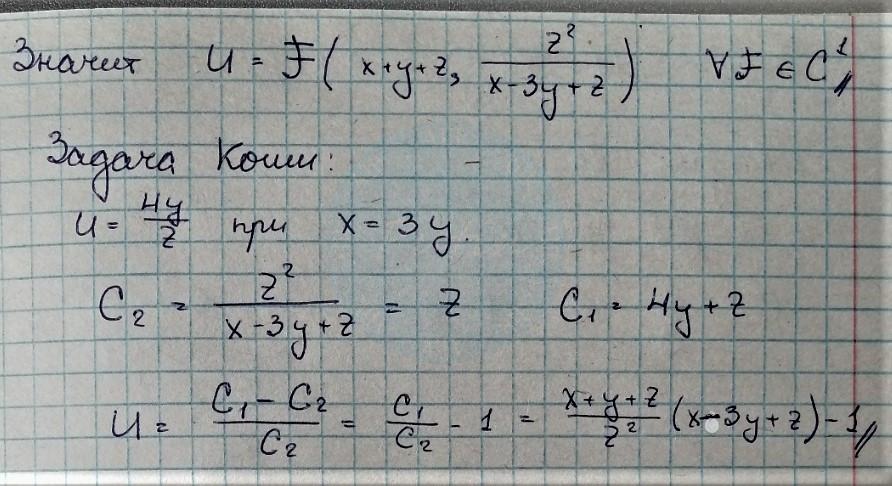 Значит U = F( x+y+z, z²/(x-3y+z) ) ∀ F ∈ C¹//
Задача Коши:
U = 4y/z при x = 3y.
C₂ = z²/(x-3y+z) = z C₁ = 4y+z
U = (C₁-C₂)/C₂ = C₁/C₂ - 1 = (x+y+z)/z² (x-3y+z)-1//